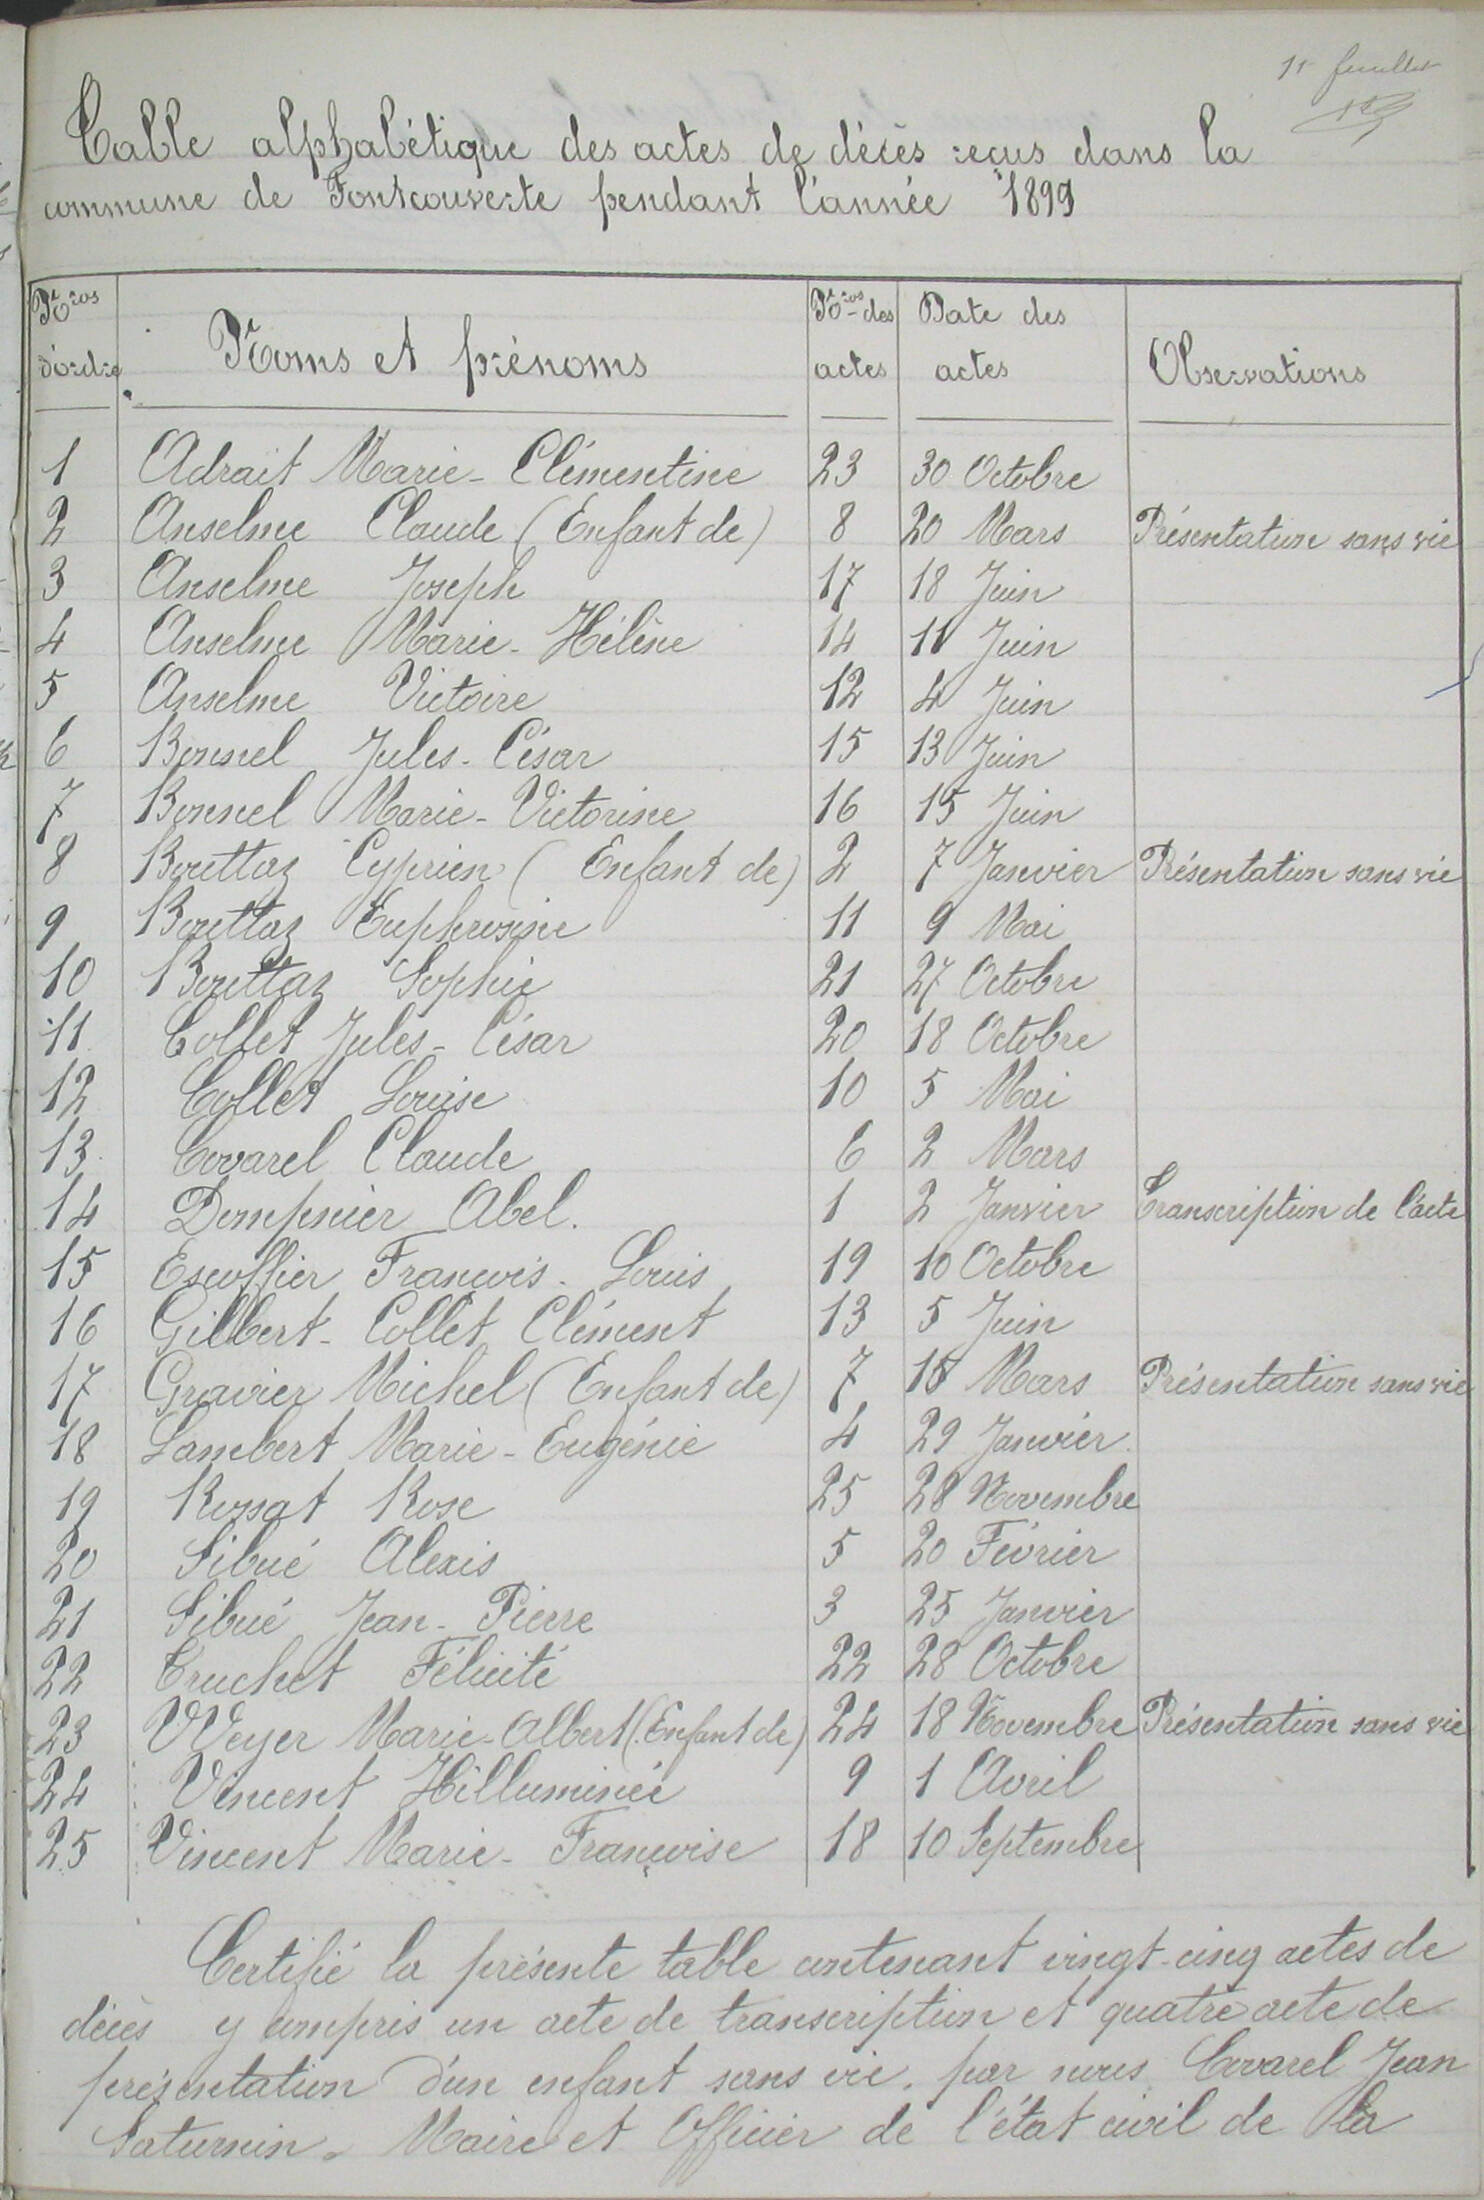 11 feuillet
Table alphabétique des actes de décès reçus dans la
commune de Fontcouverte pendant l'année 1899
Nros d'ordre Noms et prénoms Nros des actes Date des actes Observations
1 Adrait Marie-Clémentine 23 30 Octobre
2 Anselme Claude (Enfant de) 8 20 Mars Présentation sans vie
3 Anselme Joseph 17 18 Juin
4 Anselme Marie-Hélène 14 11 Juin
5 Anselme Victoire 12 4 Juin
6 Bonnel Jules-César 15 13 Juin
7 Bonnel Marie-Victorine 16 15 Juin
8 Bouttaz Cyprien (Enfant de) 2 7 Janvier Présentation sans vie
9 Bouttaz Euphrosine 11 9 Mai
10 Bouttaz Sophie 21 27 Octobre
11 Collet Jules-César 20 18 Octobre
12 Collet Louise 10 5 Mai
13 Covarel Claude 6 2 Mars
14 Dompnier Abel. 1 2 Janvier Transcription de l'acte
15 Escoffier François-Louis 19 10 Octobre
16 Gilbert-Collet Clément 13 5 Juin
17 Gravier Michel (Enfant de) 7 18 Mars Présentation sans vie
18 Lambert Marie-Eugénie 4 29 Janvier
19 Rossat Rose 25 28 Novembre
20 Sibué Alexis 5 20 Février
21 Sibué Jean-Pierre 3 25 Janvier
22 Truchet Félicité 22 28 Octobre
23 VVeyer Marie-Albert (Enfant de) 24 18 Novembre Présentation sans vie
24 Vincent Hilluminée 9 1 Avril
25 Vincent Marie-Françoise 18 10 Septembre
Certifié la présente table contenant vingt-cinq actes de
décès y compris un acte de transcription et quatre acte de
présentation d'un enfant sans vie. par nous Covarel Jean
Saturnin. Maire et Officier de l'état civil de la